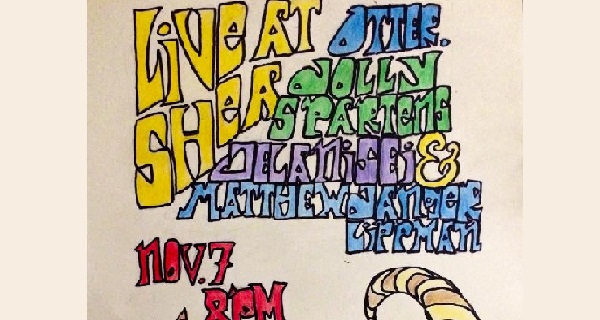 LiVE AT
SHEA
OTTER.
JOLLY
SPARTENS
JELANiSEi &
MATTHEW DANGER
LiPPMAN
NOV. 7
8PM